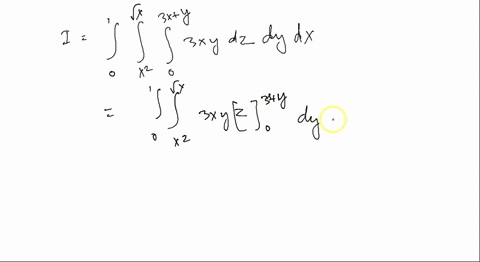 I = ∫₀¹ ∫ₓ₂^√x ∫₀^3x+y 3xy dz dy dx
= ∫₀¹ ∫ₓ₂^√x 3xy [z]₀^3x+y dy